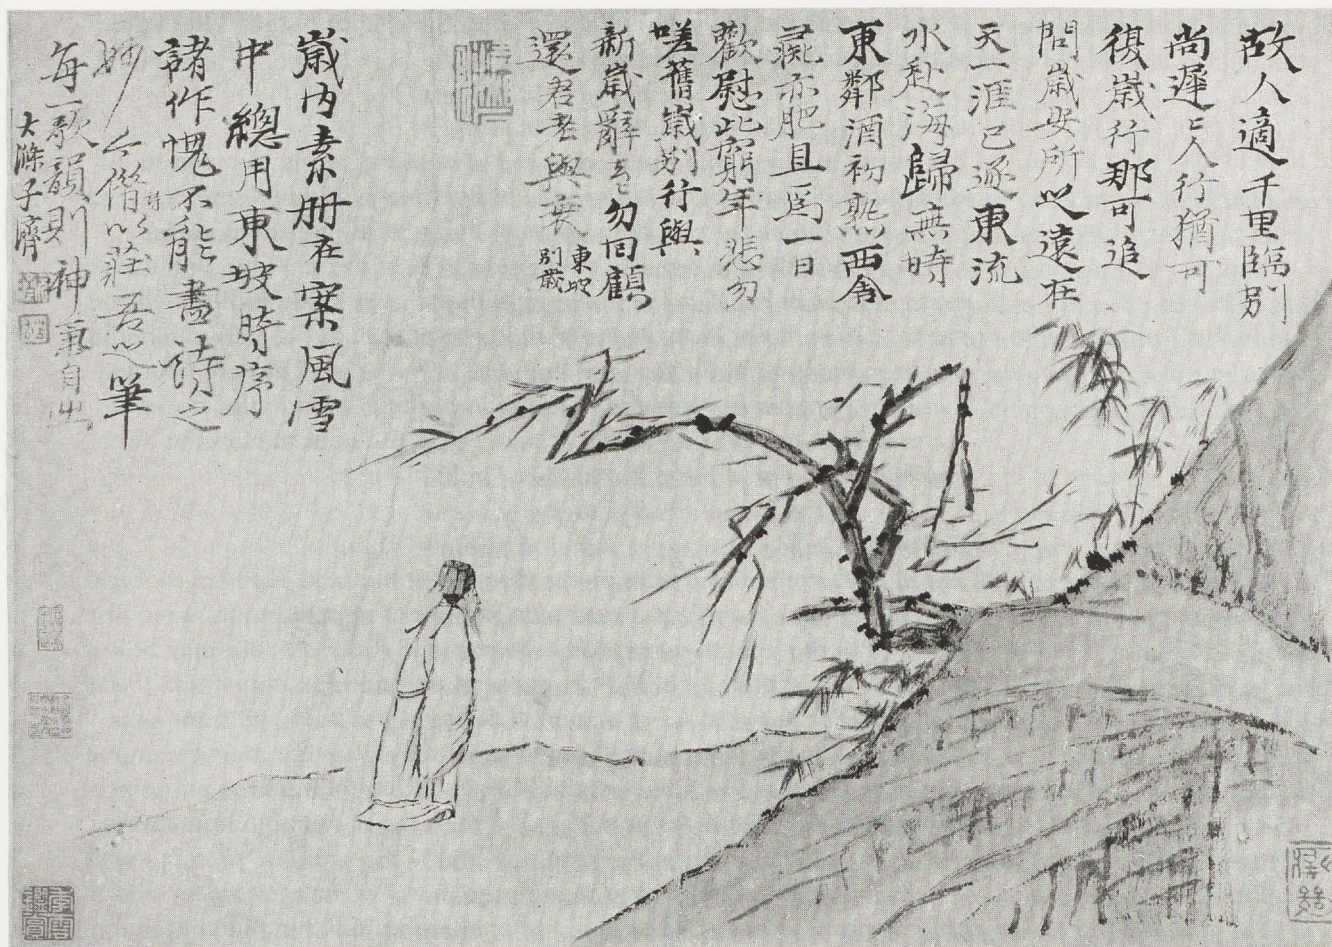 故人適千里臨別
尚遲〻人行猶可
復歲行那可追
問歲安所之遠在
天一涯已逐東流
水赴海歸無時
東鄰酒初熟西舍
彘亦肥且爲一日
歡慰此窮年悲勿
嗟舊歲別行與
新歲辭去〻勿回顧
還君老與衰
東坡
別歲
歲内素册在案風雪
中總用東坡時序
諸作愧不能盡詩之
妙今僭以莊吾之筆
每一歌韻則神氣自出
大滌子濟